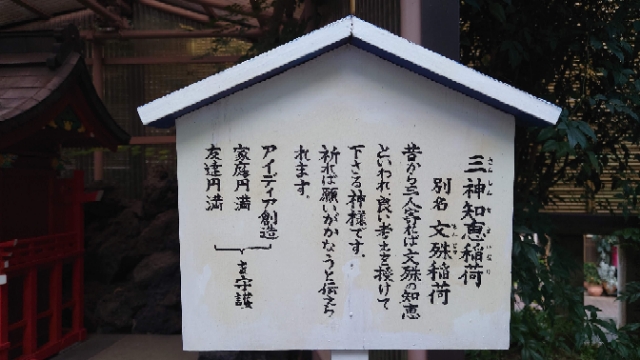 三神知恵稲荷
別名 文殊稲荷
昔から三人寄れば文殊の知恵
といわれ良い考えを授けて
下さる神様です。
祈れば願いがかなうと伝えら
れます。
アイディア創造
家庭円満
友達円満
を守護